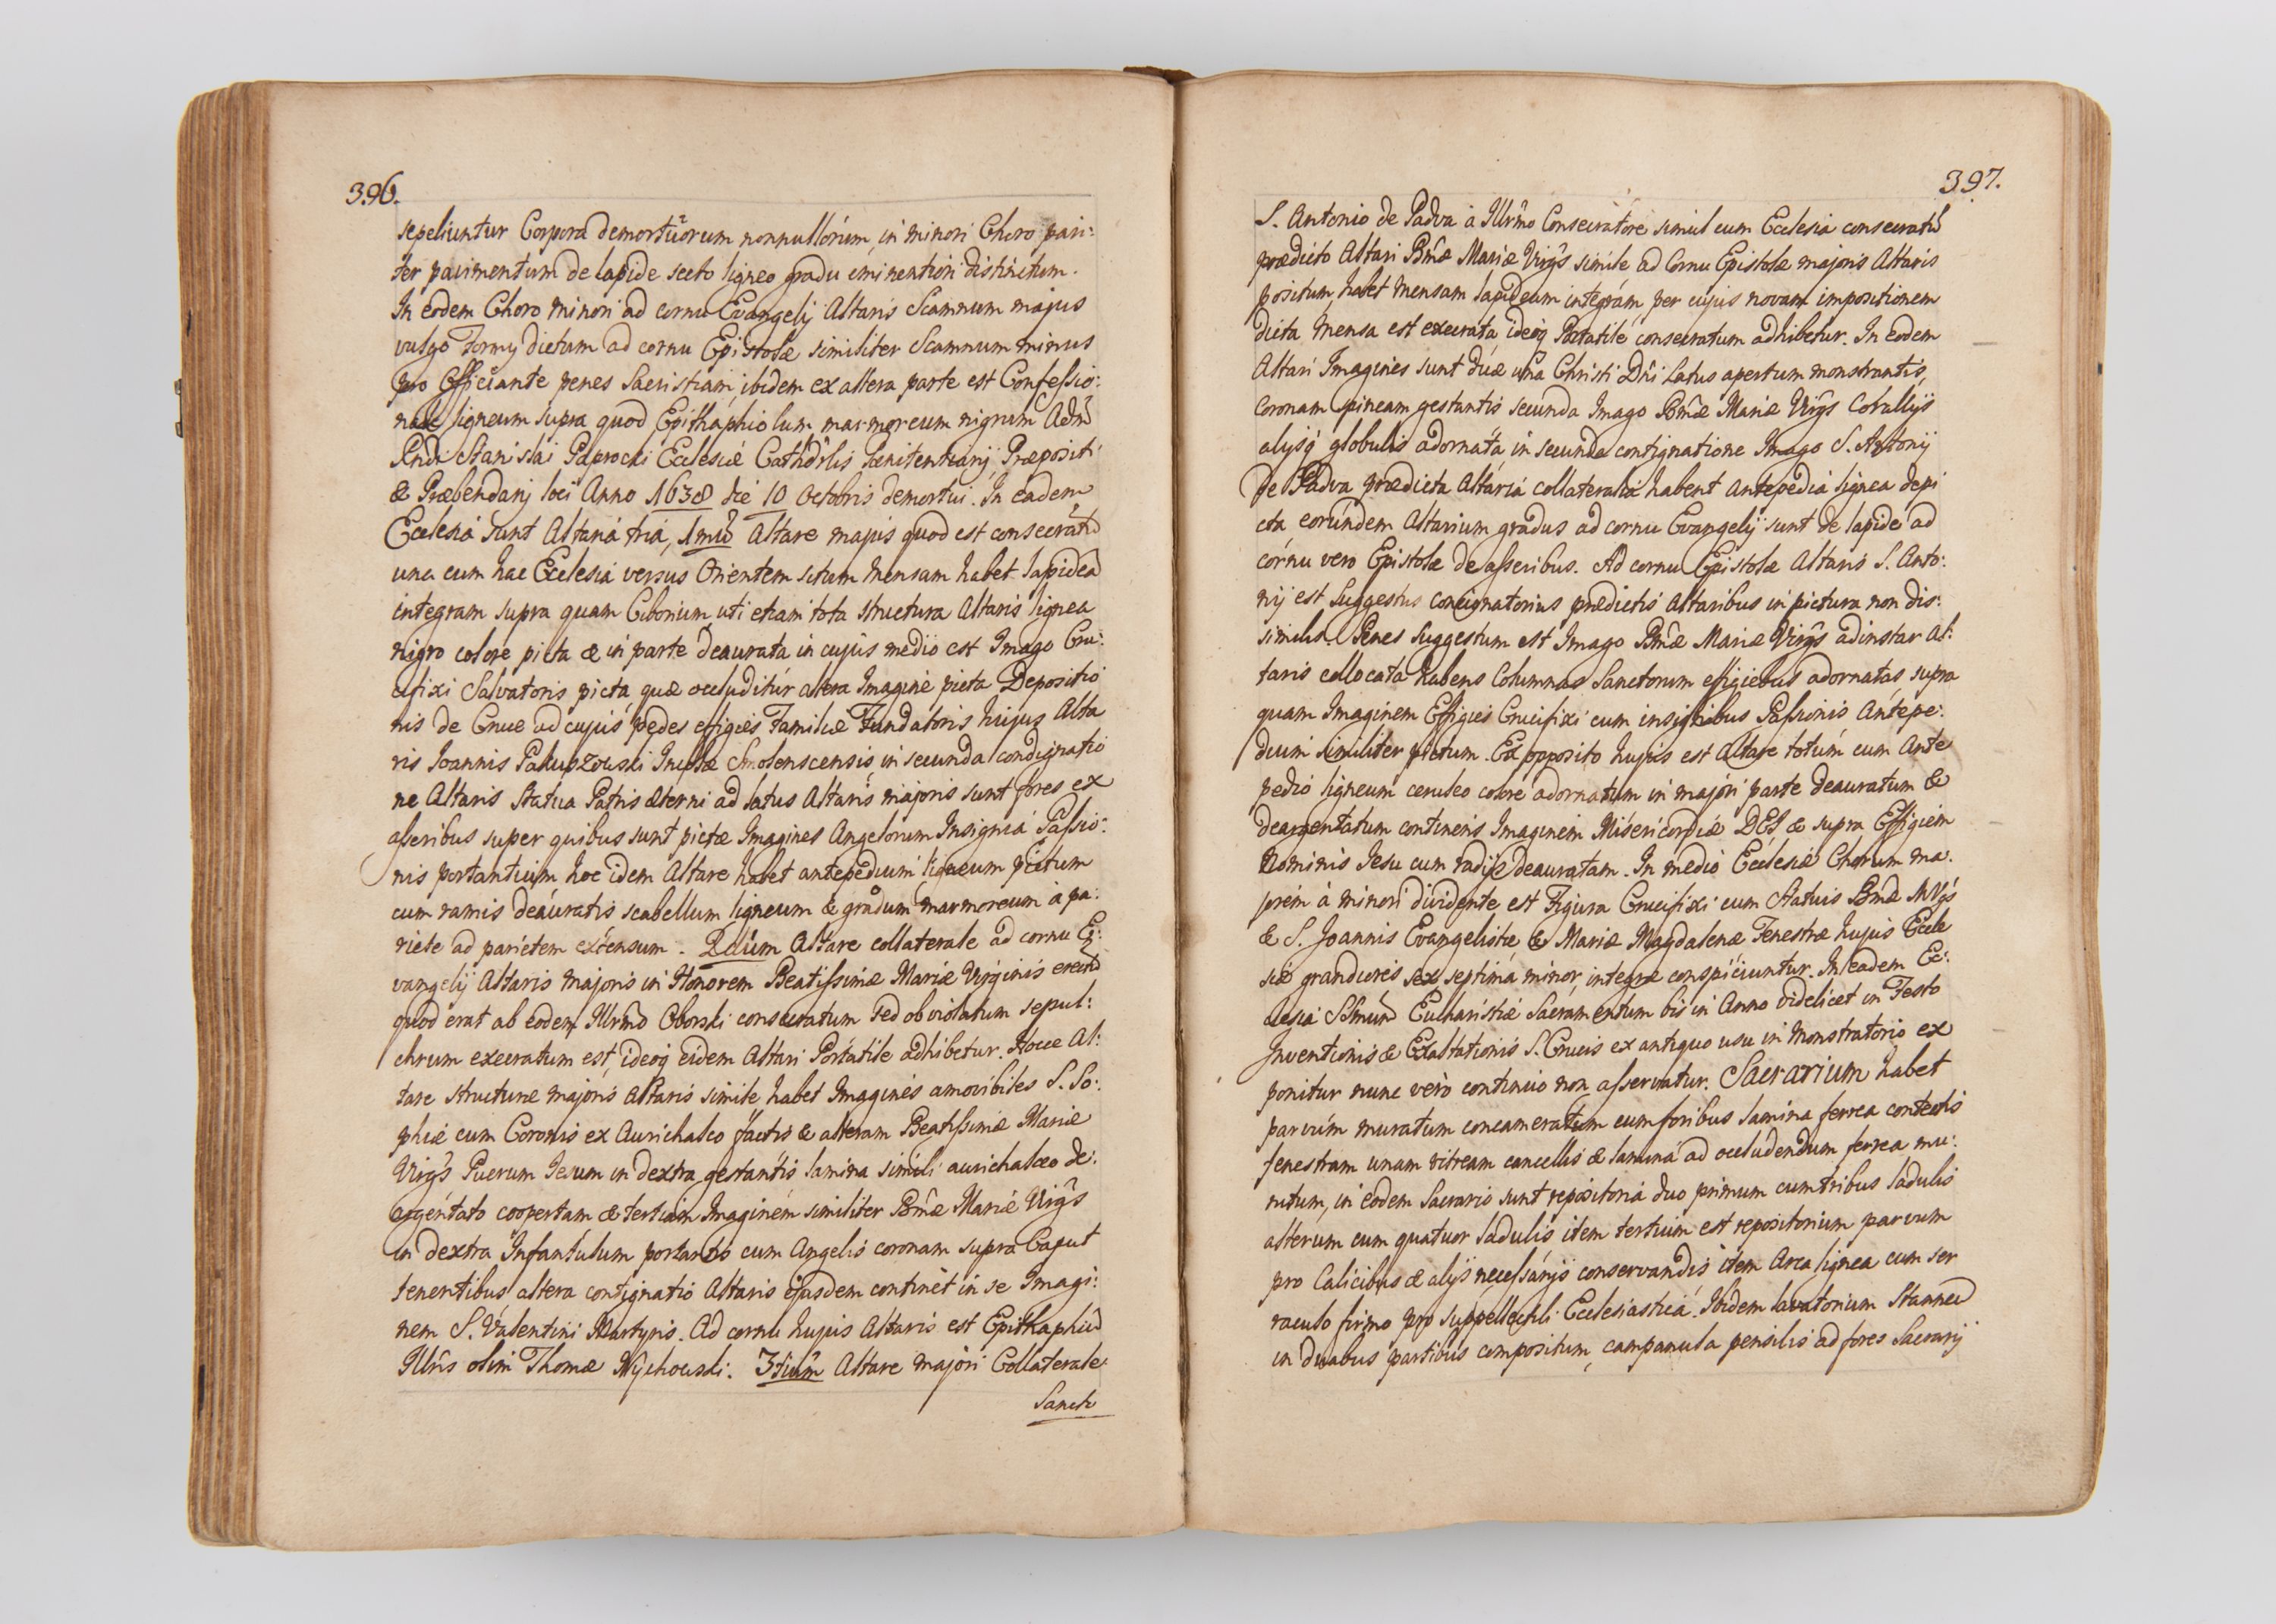 396.
sepeliuntur Corpora demortuorum nonnullórum, in minori Choro pari:
ter pavimentum de lapide secto ligneo gradu eminentiori distinctum.
In eodem Choro minori ad cornu Evangelij Altaris Scamnum majus
vulgo Formy dictum ad cornu Epistolæ similiter Scamnum minus
pro Officiante penes Sacristiam, ibidem ex altera parte est Confessio:
nale ligneum supra quod Epithaphiolum marmoreum nigrum Adm̃
Rndi Stanislai Paprocki Ecclesiæ Cathdrlis Pœnitentiarij, Præpositi
& Præbendarij loci Anno 1638 die 10 Octobris demortui. In eadem
Ecclesiá sunt Altariá tria, 1mũ Altare majus quod est consecratũ
una cum hac Ecclesiá versus Orientem situm Mensam habet lapideã
integram supra quam Ciborium, uti etiam tota structura Altaris lignea
nigro colore picta & in parte deaurata in cujus medio est Imago Cru:
cifixi Salvatoris picta, quæ occluditúr altera Imagine picta Depositio
nis de Cruce ad cujus pedes effigies Familiæ Fundatoris hujus Alta
ris Joannis Pakuszouski Smolenscensis, in secunda condignatio
ne Altaris Statua Patris Æterni ad latus Altaris majoris sunt fores ex
asseribus super quibus sunt pictæ Imagines Angelorum Insigniá Passio:
nis portantium hoc idem Altare habet antepedium ligneum pictum
cum ramis deáuratis scabellum ligneum & gradum marmoreum à pa:
riete ad parietem extensum. 2dum Altare collaterale ad cornu E:
vangelij Altaris majoris in Honorem Beatissimæ Mariæ Virginis erectũ
quod erat ab eodem Illrmo Oborski consecratum sed ob violatum sepul:
chrum execratum est, ideoq eidem Altari Portátile adhibetur. Hocce Al:
tare structuræ majoris Altaris simile habet Imagines amovibiles S. So:
phiæ cum Coronis ex Aurichalco factis & alteram Beatissimæ Mariæ
Virgs Puerum Jesum in dextra gestantis lamina simili aurichalceo de:
argéntato coopertam & tertiam Imaginem similiter Bmæ Mariæ Virgs
in dextra Infantulum portantis cum Angelis coronam supra Caput
tenentibus altera contignatio Altaris ejusdem continet in se Imagi:
nem S. Valentini Martyris. Ad cornu hujus Altaris est Epithaphiũ
Illris olim Thomæ Wychowski. 3tium Altare majori Collaterale
Sancto
397.
S. Antonio de Padva à Illrmo Consecratóre simul cum Ecclesiá consecratũ
prædicto Altari Bmæ Mariæ Virgs simile ad Cornu Epistolæ majoris Altaris
positum habet Mensam lapideam integrám, per cujus novam impositionem
dicta Mensa est execrata ideóq Portatile consecratum adhibetur. In eodem
Altari Imagines sunt duæ una Christi Dni Latus apertum monstrantis,
coronam spineam gestantis secunda Imago Bmæ Mariæ Virgs Corallijs
alijsq globulis adornáta in secunda contignatione Imago S. Antonij
De Padva prædicta Altariá collateraliá habent Antepediá lignea depi
cta, eorundem Altarium gradus ad cornu Evangelij sunt de lapide ad
córnu vero Epistolæ de asseribus. Ad cornu Epistolæ Altaris S. Anto:
nij est Suggestus concignatorius prædictis Altaribus in pictura non dis:
similis. Penes Suggestum est Imago Bmæ Mariæ Virgs adinstar Al:
taris collocata habens Columnas Sanctorum effigiebus adornatas, supra
quam Imaginem Effigies Crucifixi cum insignibus Passionis Antepe:
dium similiter pictum. Ex opposito hujus est Altare totum cum Ante
pedio ligneum ceruleo colore adornatum in majori parte deauratum &
deargentátum continens Imaginem Misericordiæ DEI & supra Effigiem
Nominis Jesu cum radijs deauratam. In medio Ecclesiæ Chorum ma.
jorem à minori dividente est Figura Crucifixi cum Statuis Bmæ MVgs
& S. Joannis Evangelistæ & Mariæ Magdalenæ Fenestræ hujus Eccle
siæ grandiores sex septima minor, integræ conspiciuntur. In eadem Ec:
clesia SSmum Eucharistiæ Sacramentum bis in Anno videlicet in Festo
Inventionis & Exaltationis S. Crucis ex antiquo usu in Monstratorio ex
ponitur nunc vero continuo non asservatur. Sacrarium habet
parvúm muratum concameratum cum foribus lamina ferrea contectis
fenestram unam vitream cancellis & laminá ad occludendum ferrea mu:
nitum, in eodem Sacrario sunt repositoriá duo primum cum tribus ladulis
alterum cum quatuor ladulis item tertium est repositorium parvum
pro Calicibus & alijs necessárijs conservandis item Arca lignea cum ser
raculo firmo pro suppellectili Ecclesiastica. Ibidem lavatorium Stanneũ
in duabus partibus compositum, campanula pensilis ad fores Sacrarij